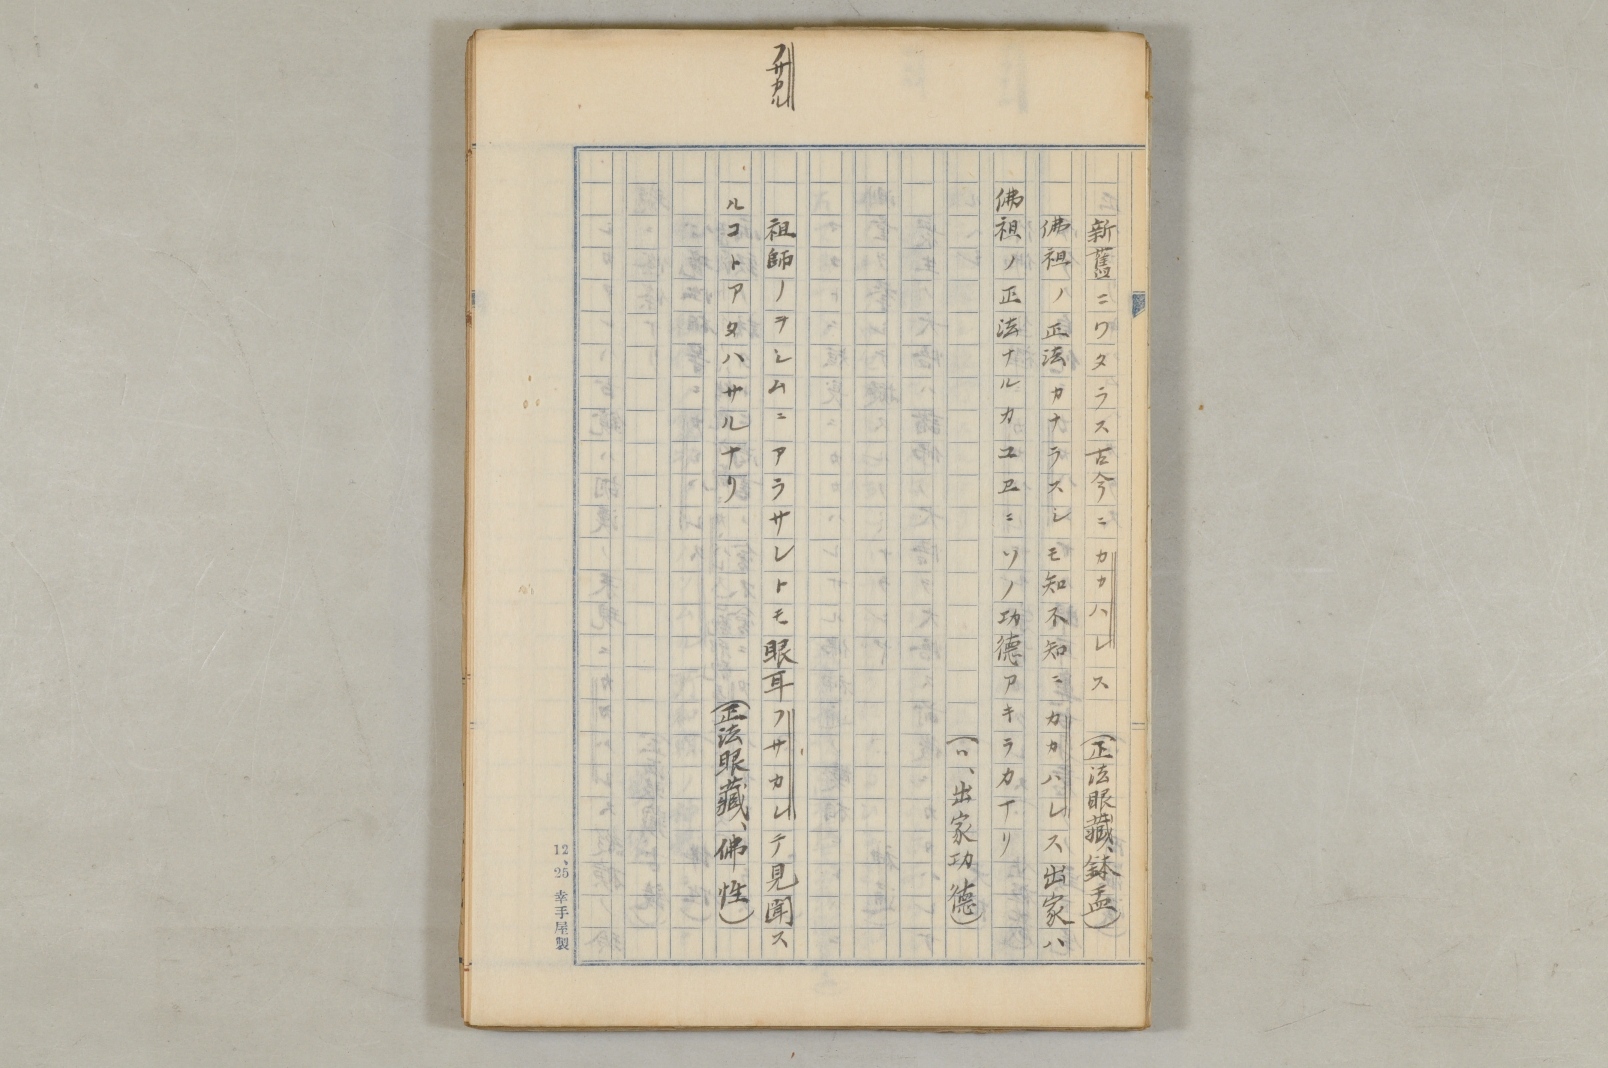 フサカル
新舊ニワタラス古今ニカカハレス(正法眼藏、鉢盂)
佛祖ノ正法カナラスシモ知不知ニカカハレス出家ハ
佛祖ノ正法ナルカユヱニソノ功德アキラカナリ
(〃、出家功德)
祖師ノヲシムニアラサレトモ眼耳フサカレテ見聞ス
ルコトアタハサルナリ(正法眼藏、佛性)
12、25 幸手屋製